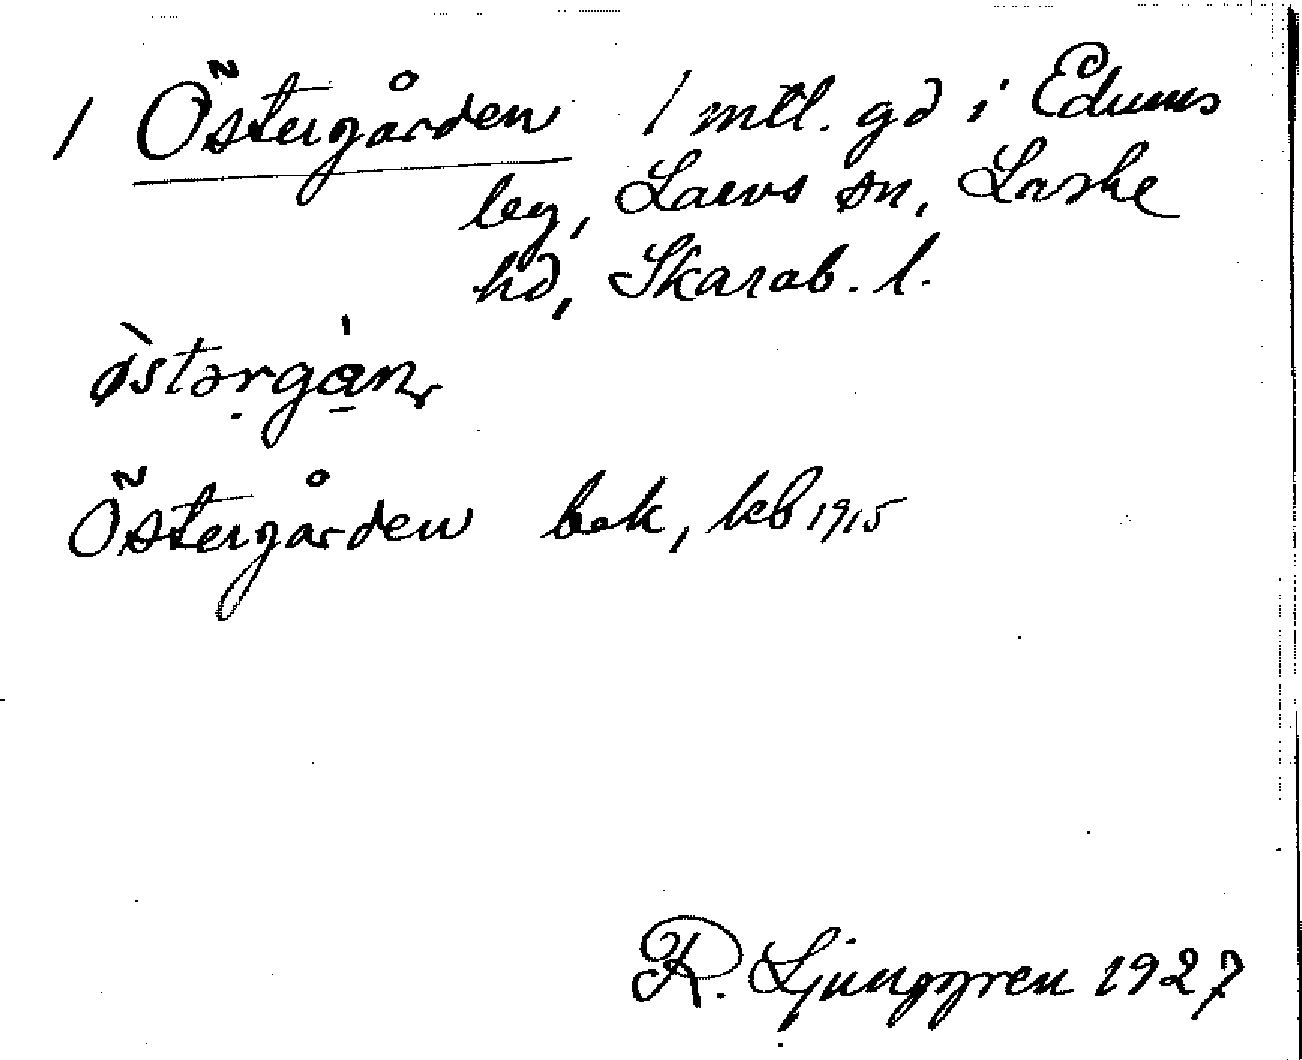 1 Östergården 1 mtl. gd i Edums
by, Larvs sn, Laske
hd, Skarab. l.
Östergården bok, kb 1915
R. Ljunggren 1927